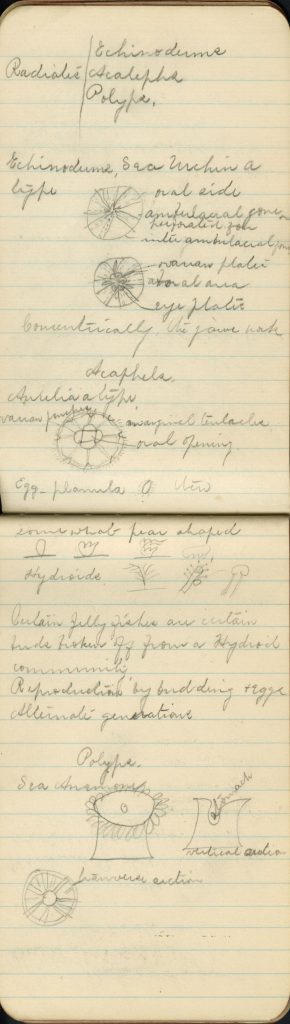 Echinoderms
Radiates Acalephs
Polyps.
Echinoderms, Sea Urchin a
type
oral side
ambulacral zone or
perforated zone
inter ambulacral zone
ovarian plates
aboral area
eye plates
Concentrically, the jaws work
Acaphels.
Aurelia a type
ovarian pouches
marginal tentacles
oral opening
Egg planula
some what pear shaped
Hydroids.
Certain Jelly fishes are certain
buds broken off from a Hydroid
community
Reproduction by budding + eggs
Alternate generations
Polyps.
Sea Anemone
stomach
vertical section
tranverse section